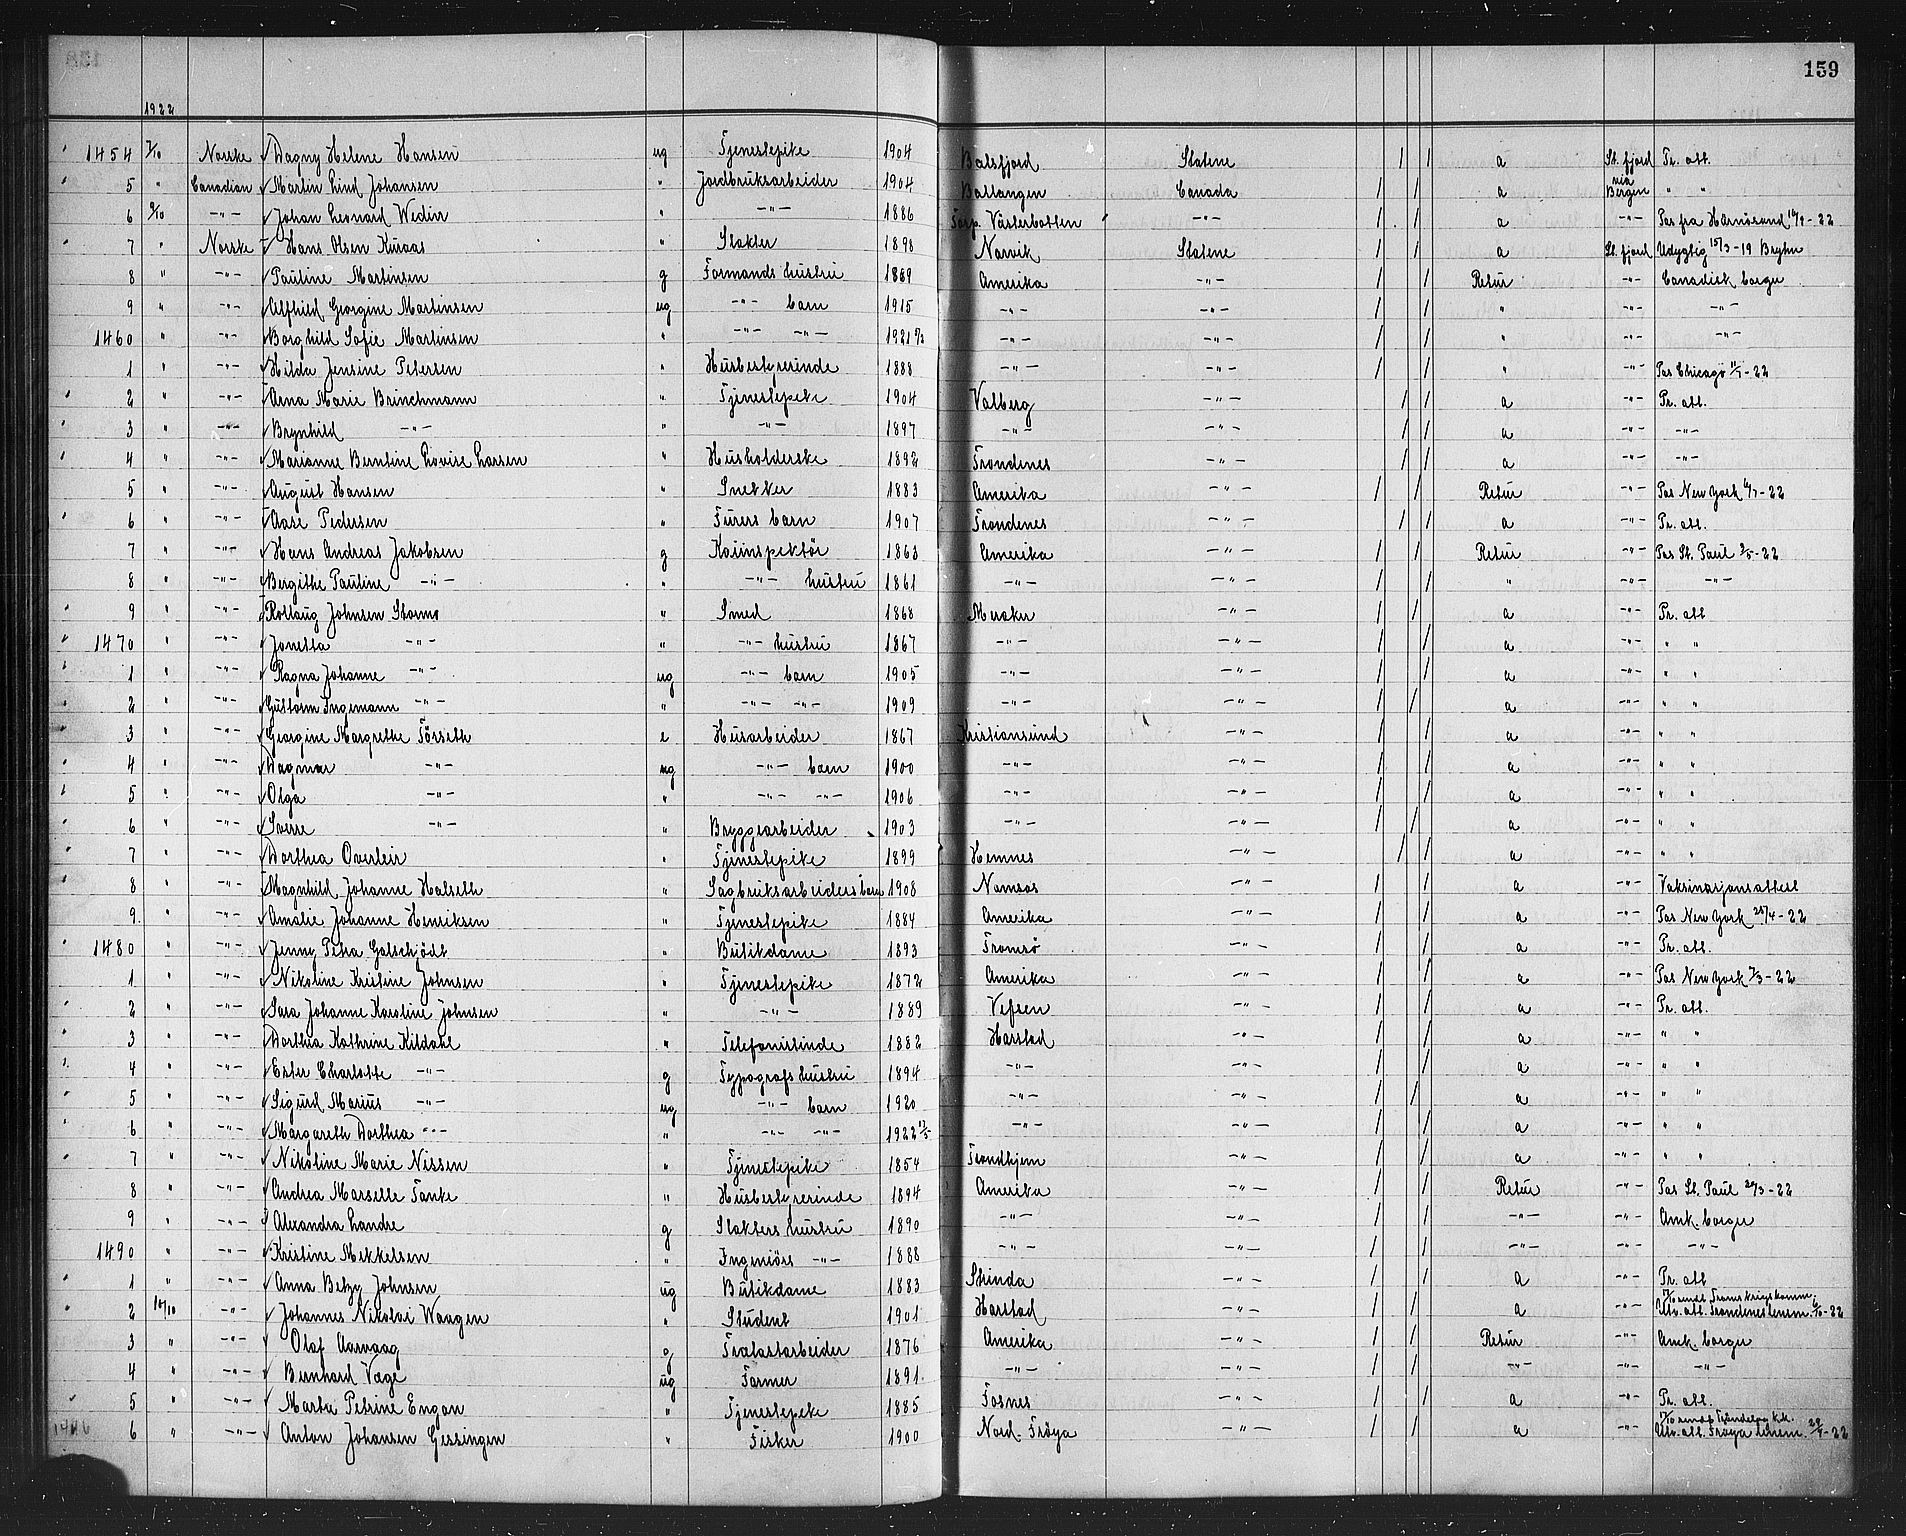 159
1922
1454 7/10 Norske Dagny Helene Hansen ug Tjenestepike 1904 Balsfjord Statene / / a St. fjord Pr. att.
5 " Canadian Martin Lind Johansen " Jordbruksarbeider 1904 Ballangen Canada / / a via Bergen " "
6 9/10 -"- Johan Leonard Wedin " -"- 1886 Torp. Västerbotten -"- / / a -"- Pas fra Härnösand 14/9-22
7 " Norske Hans Olsen Kuraas " Slakter 1898 Narvik Statene / / a St. fjord Udygtig 15/3-19 Bryhn
8 " -"- Pauline Martinsen g Formands hustru 1889 Amerika -"- / / Retur -"- Canadisk borger
9 " -"- Alfhild Georgine Martinsen ug -"- barn 1915 -"- -"- / / " -"- -"-
1460 " -"- Borghild Sofie Martinsen " -"- -"- 1921 -"- -"- / / " -"- -"-
1 " -"- Hilda Jensine Petersen " Husbestyrerinde 1888 -"- -"- / / " -"- Pas Chicago 11/7-22
2 " -"- Arna Marie Brinchmann " Tjenestepike 1904 Valberg -"- / / a -"- Pr. att.
3 " -"- Brynhild -"- " -"- 1897 -"- -"- / / a -"- -"-
4 " -"- Marianne Berntine Lovise Larsen " Husholderske 1892 Trondenes -"- / / a -"- -"-
5 " -"- August Hansen " Snekker 1883 Amerika -"- / / Retur -"- Pas New York 6/7-22
6 " -"- Aase Pedersen " Furers barn 1907 Trondenes -"- / / a -"- Pr. att.
7 " -"- Hans Andreas Jakobsen g Kaiinspektör 1863 Amerika -"- / / Retur -"- Pas St. Paul 2/5-22
8 " -"- Bergithe Pauline -"- " -"- hustru 1861 -"- -"- / / " -"- -"-
9 " -"- Rollaug Johnsen Stormo " Smed 1868 Meraker -"- / / a -"- Pr. att
1470 " -"- Jonetta -"- " -"- hustru 1867 -"- -"- / / a -"- " "
1 " -"- Ragna Johanne -"- ug -"- barn 1905 -"- -"- / / a -"- " "
2 " -"- Guttorm Ingemann -"- " -"- -"- 1909 -"- -"- / / a -"- " "
3 " -"- Georgine Margrethe Törseth e Husarbeider 1867 Kristiansund -"- / / a -"- " "
4 " -"- Dagmar -"- ug -"- barn 1900 -"- -"- / / a -"- " "
5 " -"- Olga -"- " -"- -"- 1906 -"- -"- / / a -"- " "
6 " -"- Sverre -"- " Bryggearbeider 1903 -"- -"- / / a -"- " "
7 " -"- Dorthea Overleir " Tjenestepike 1899 Hemnes -"- / / a -"- " "
8 " -"- Magnhild Johanne Halseth " Sagbruksarbeiders barn 1908 Namsos -"- / / a -"- Vaksinasjonsattest
9 " -"- Amalie Johanne Henriksen " Tjenestepike 1884 Amerika -"- / / a -"- Pas New York 25/4-22
1480 " -"- Jenny Petra Galschjödt " Butikdame 1893 Tromsö -"- / / a -"- Pr. att.
1 " -"- Nikoline Kristine Johnsen " Tjenestepike 1872 Amerika -"- / / a -"- Pas New York 7/3-22
2 " -"- Sara Johanne Karoline Johnsen " -"- 1889 Vefsen -"- / / a -"- Pr. att.
3 " -"- Dorthea Kathrine Kildahl " Telefonistinde 1882 Harstad -"- / / a -"- " "
4 " -"- Ester Charlotte -"- g Typografs hustru 1894 -"- -"- / / a -"- " "
5 " -"- Sigurd Marius -"- ug -"- barn 1920 -"- -"- / / a -"- " "
6 " -"- Margareth Dorthea -"- " -"- -"- 1922 -"- -"- / / a -"- " "
7 " -"- Nikoline Marie Nissen " Tjenestepike 1854 Trondhjem -"- / / a -"- " "
8 " -"- Andrea Marselle Tanke " Husbestyrerinde 1894 Amerika -"- / / Retur -"- Pas St. Paul 20/3-22
9 " -"- Alexandra Landre g Slakters hustru 1890 -"- -"- / / -"- -"- Amk. borger
1490 " -"- Kristine Mikkelsen " Ingeniörs -"- 1888 -"- -"- / / -"- -"- -"-
1 " -"- Anna Betzy Johnsen ug Butikdame 1883 Strinda -"- / / a -"- Pr. att
2 10/10 -"- Johannes Nikolai Waagen " Student 1901 Harstad -"- / / a -"- 17/10 sendt Troms Krigskomm. Utv. att. Trondenes lensm. 6/10-22
3 " -"- Olaf Aarvaag g Trælastarbeider 1876 Amerika -"- / / Retur -"- Amk. borger
4 " -"- Bernhard Vage ug Farmer 1891 -"- -"- / / -"- -"- -"-
5 " -"- Marta Petrine Engan " Tjenestepike 1885 Fosnes -"- / / a -"- Pr. att.
6 " -"- Anton Johansen Gessingen " Fisker 1900 Nord-Fröya -"- / / a -"- 17/10 sendt Tröndelag K.k. Utv. att. Fröya lensm. 29/9-22